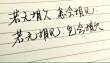 若无相欠 怎会相见
若无相欠,怎会相见